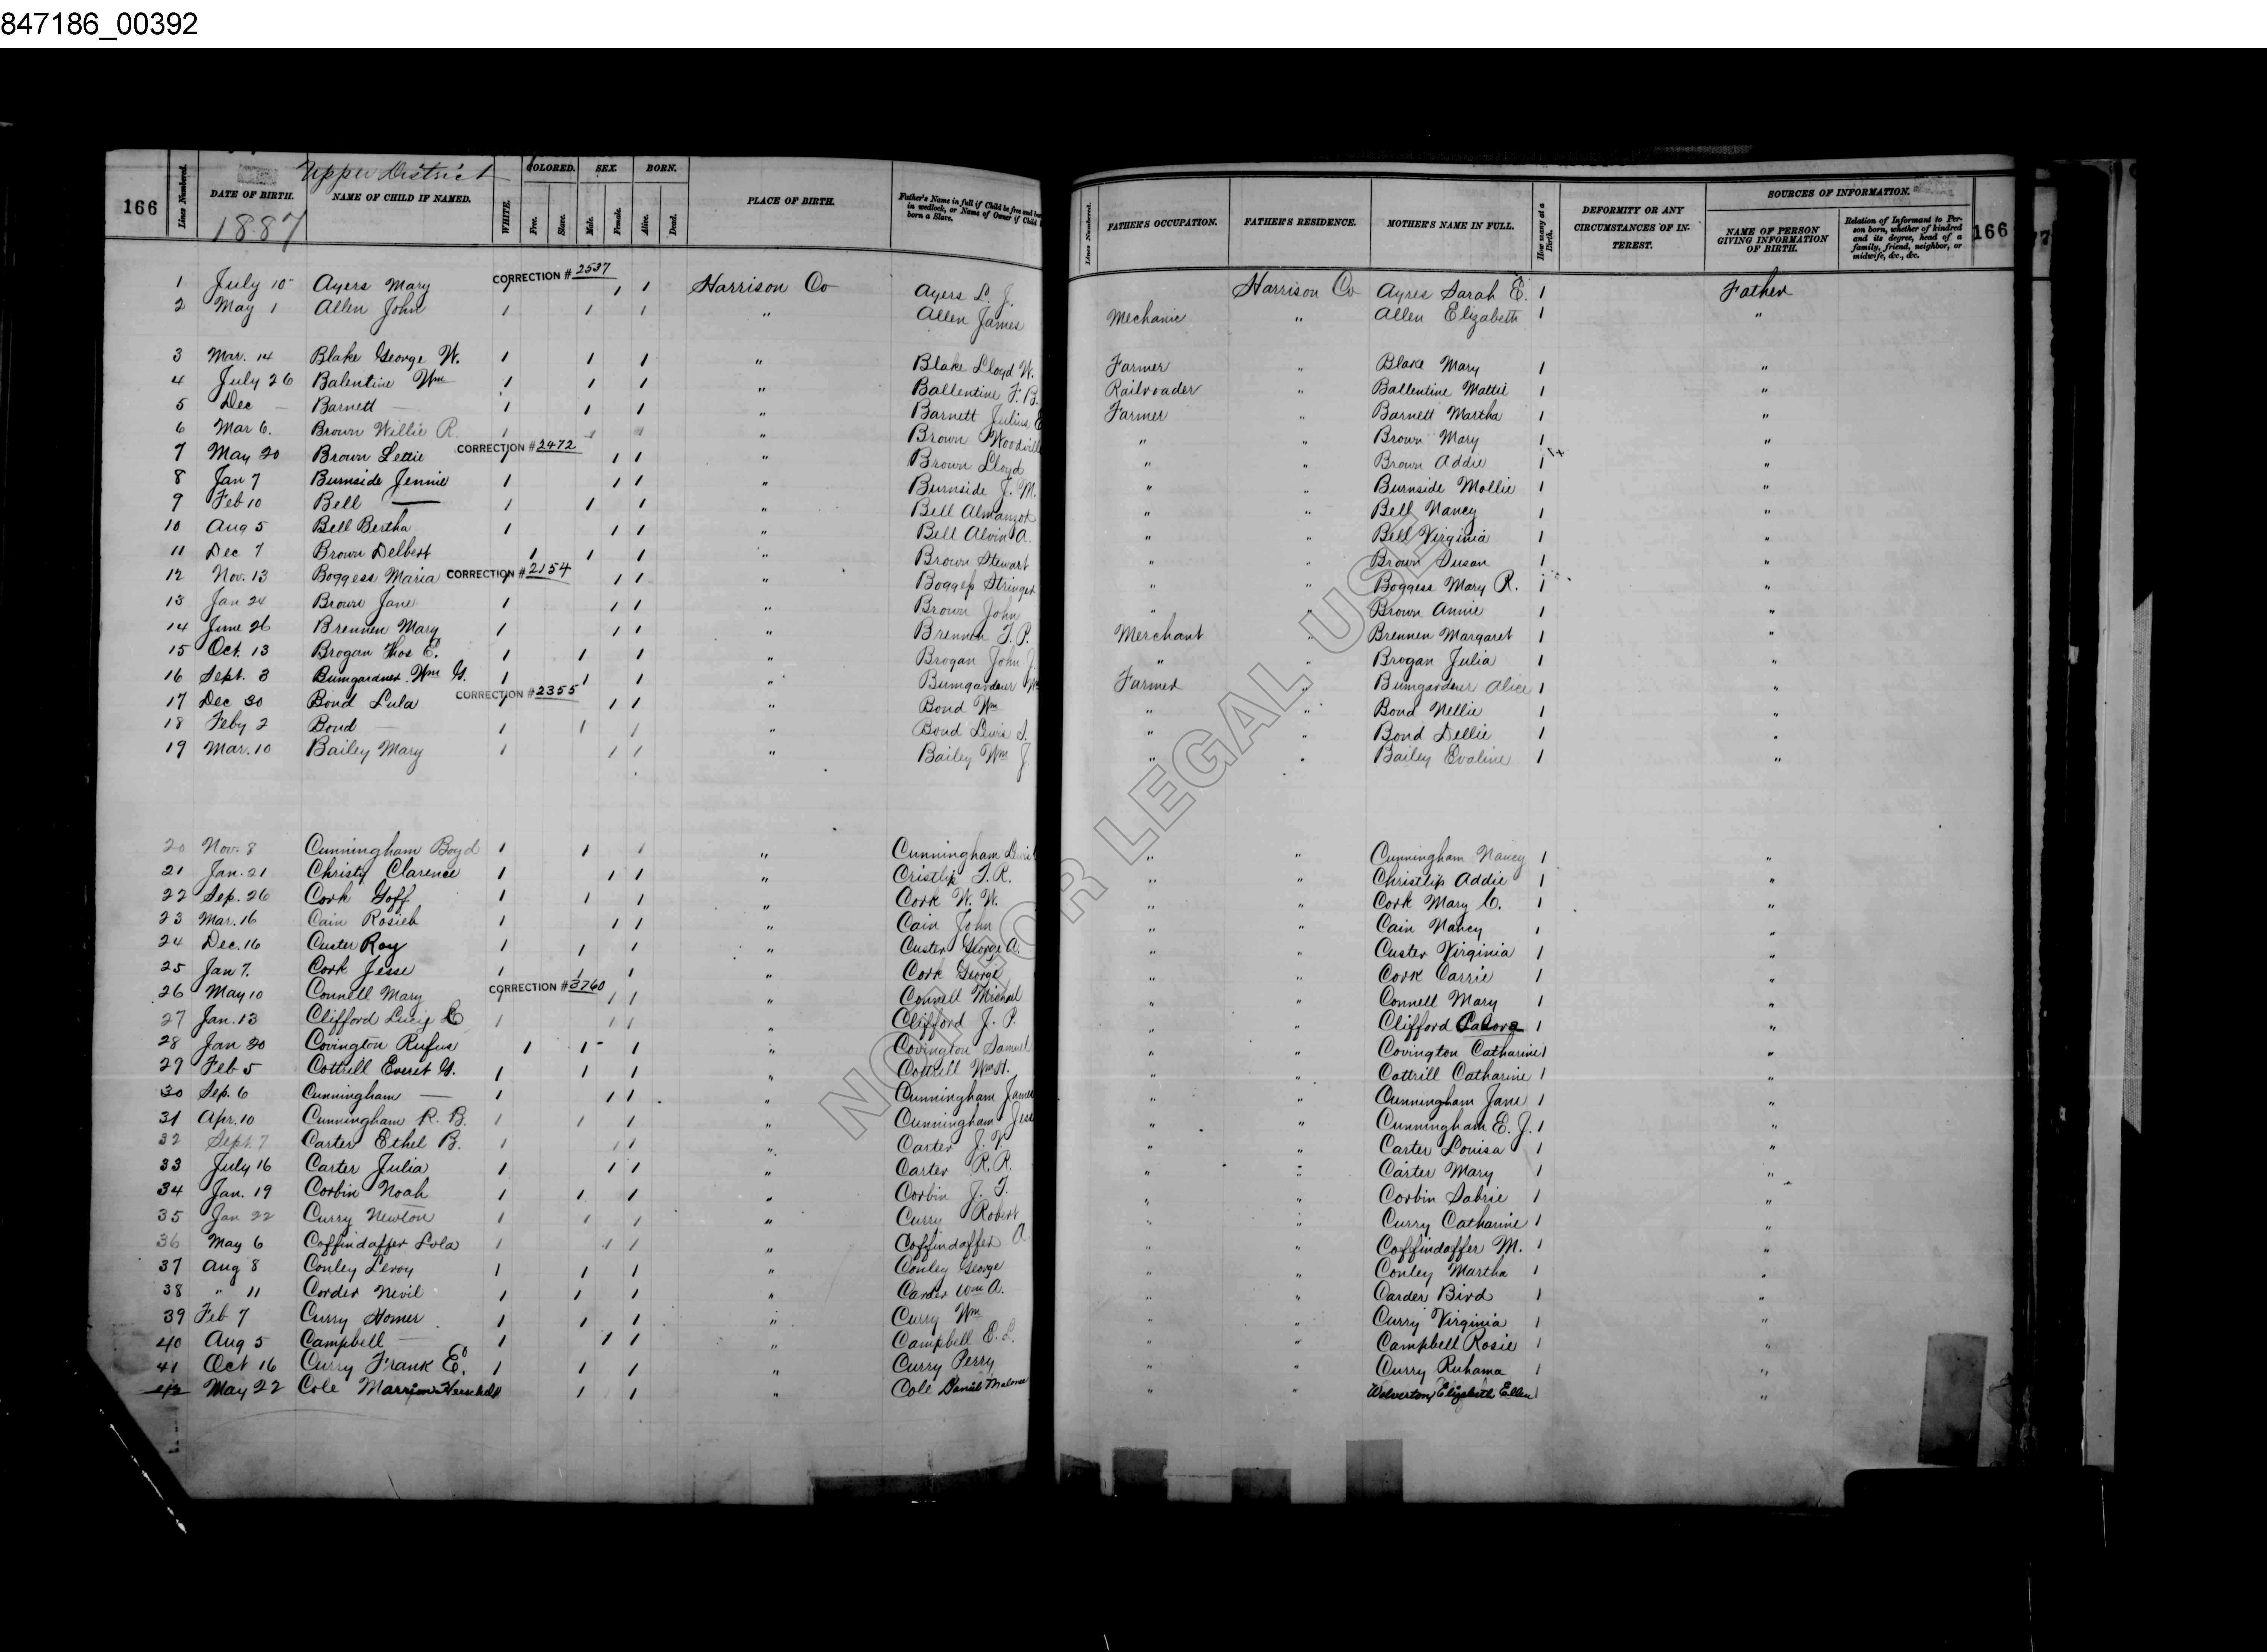 847186_00392
Upper District
166
Lines Numbered.
DATE OF BIRTH.
1887
NAME OF CHILD IF NAMED.
WHITE.
COLORED.
Free.
Slave.
SEX.
Male.
Female.
BORN.
Alive.
Dead.
PLACE OF BIRTH.
Father's Name in full if Child be free and born in wedlock, or Name of Owner if Child born a Slave.
Lines Numbered.
FATHER'S OCCUPATION.
FATHER'S RESIDENCE.
MOTHER'S NAME IN FULL.
How many at a Birth.
DEFORMITY OR ANY CIRCUMSTANCES OF INTEREST.
SOURCES OF INFORMATION.
NAME OF PERSON GIVING INFORMATION OF BIRTH.
Relation of Informant to Person born, whether of kindred and its degree, head of a family, friend, neighbor, or midwife, &c., &c.
166
1 July 10 Ayers Mary CORRECTION # 2537 1 1 1 Harrison Co Ayers L. J. Harrison Co Ayres Sarah E. 1 Father
2 May 1 Allen John 1 1 1 " Allen James Mechanic " Allen Elizabeth 1 "
3 Mar. 14 Blake George W. 1 1 1 " Blake Lloyd W. Farmer " Blake Mary 1 "
4 July 26 Balentine Wm 1 1 1 " Ballentine F. B. Railroader " Ballentine Mattie 1 "
5 Dec — Barnett — 1 1 1 " Barnett Julius E Farmer " Barnett Martha 1 "
6 Mar 6. Brown Willie R. 1 1 1 " Brown Woodville " " Brown Mary 1 "
7 May 20 Brown Lettie CORRECTION # 2472 1 1 1 " Brown Lloyd " " Brown Addie 1 "
8 Jan 7 Burnside Jennie 1 1 1 " Burnside J. M. " " Burnside Mollie 1 "
9 Feb 10 Bell — 1 1 1 " Bell Almanzor " " Bell Nancy 1 "
10 Aug 5 Bell Bertha 1 1 1 " Bell Alvin A. " " Bell Virginia 1 "
11 Dec 7 Brown Delbert 1 1 1 " Brown Stewart " " Brown Susan 1 "
12 Nov. 13 Boggess Maria CORRECTION # 2154 1 1 1 " Boggess Stringer " " Boggess Mary R. 1 "
13 Jan 24 Brown Jane 1 1 1 " Brown John " " Brown Annie 1 "
14 June 26 Brennen Mary 1 1 1 " Brennen T. P. Merchant " Brennen Margaret 1 "
15 Oct. 13 Brogan Thos E. 1 1 1 " Brogan John J. " " Brogan Julia 1 "
16 Sept. 3 Bumgardner Wm G. 1 1 1 " Bumgardner Wm Farmer " Bumgardner Alice 1 "
17 Dec 30 Bond Lula CORRECTION # 2355 1 1 1 " Bond Wm " " Bond Nellie 1 "
18 Feby 2 Bond — 1 1 1 " Bond Lewis S. " " Bond Dellie 1 "
19 Mar. 10 Bailey Mary 1 1 1 " Bailey Wm J " " Bailey Evaline 1 "
20 Nov. 8 Cunningham Boyd 1 1 1 " Cunningham " " Cunningham Nancy 1 "
21 Jan. 21 Christy Clarence 1 1 1 " Cristlip T. R. " " Christlip Addie 1 "
22 Sep. 26 Cork Goff 1 1 1 " Cork W. W. " " Cork Mary C. 1 "
23 Mar. 16 Cain Rosieb 1 1 1 " Cain John " " Cain Nancy 1 "
24 Dec. 16 Custer Roy 1 1 1 " Custer George A. " " Custer Virginia 1 "
25 Jan 7. Cork Jesse 1 1 1 " Cork George " " Cork Carrie 1 "
26 May 10 Connell Mary CORRECTION # 3760 1 1 1 " Connell Michael " " Connell Mary 1 "
27 Jan. 13 Clifford Lucy E 1 1 1 " Clifford J. P. " " Clifford 1 "
28 Jan 20 Covington Rufus 1 1 1 " Covington Samuel " " Covington Catharine 1 "
29 Feb 5 Cottrill Everet G. 1 1 1 " Cottrill Wm H. " " Cottrill Catharine 1 "
30 Sep. 6 Cunningham — 1 1 1 " Cunningham James " " Cunningham Jane 1 "
31 Apr. 10 Cunningham R. B. 1 1 1 " Cunningham Jesse " " Cunningham E. J. 1 "
32 Sept. 7 Carter Ethel B. 1 1 1 " Carter J. V. " " Carter Louisa 1 "
33 July 16 Carter Julia 1 1 1 " Carter R. R. " " Carter Mary 1 "
34 Jan. 19 Corbin Noah 1 1 1 " Corbin J. T. " " Corbin Sabrie 1 "
35 Jan 22 Curry Newton 1 1 1 " Curry Robert " " Curry Catharine 1 "
36 May 6 Coffindaffer Lola 1 1 1 " Coffindaffer A " " Coffindaffer M. 1 "
37 Aug 8 Conley Leroy 1 1 1 " Conley George " " Conley Martha 1 "
38 " 11 Corder Nevil 1 1 1 " Carder Wm A. " " Carder Bird 1 "
39 Feb 7 Curry Homer 1 1 1 " Curry Wm " " Curry Virginia 1 "
40 Aug 5 Campbell — 1 1 1 " Campbell E. L. " " Campbell Rosie 1 "
41 Oct 16 Curry Frank E. 1 1 1 " Curry Perry " " Curry Ruhama 1 "
42 May 22 Cole Marrion Herschell 1 1 " Cole Daniel " " Wolverton, Elizabeth Ellen 1 "
NOT FOR LEGAL USE